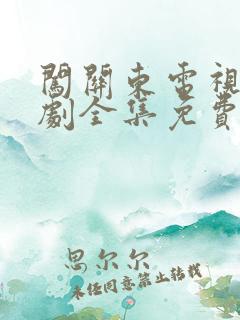 闖關東電視
劇全集免費
思尔尔
未经同意禁止转载